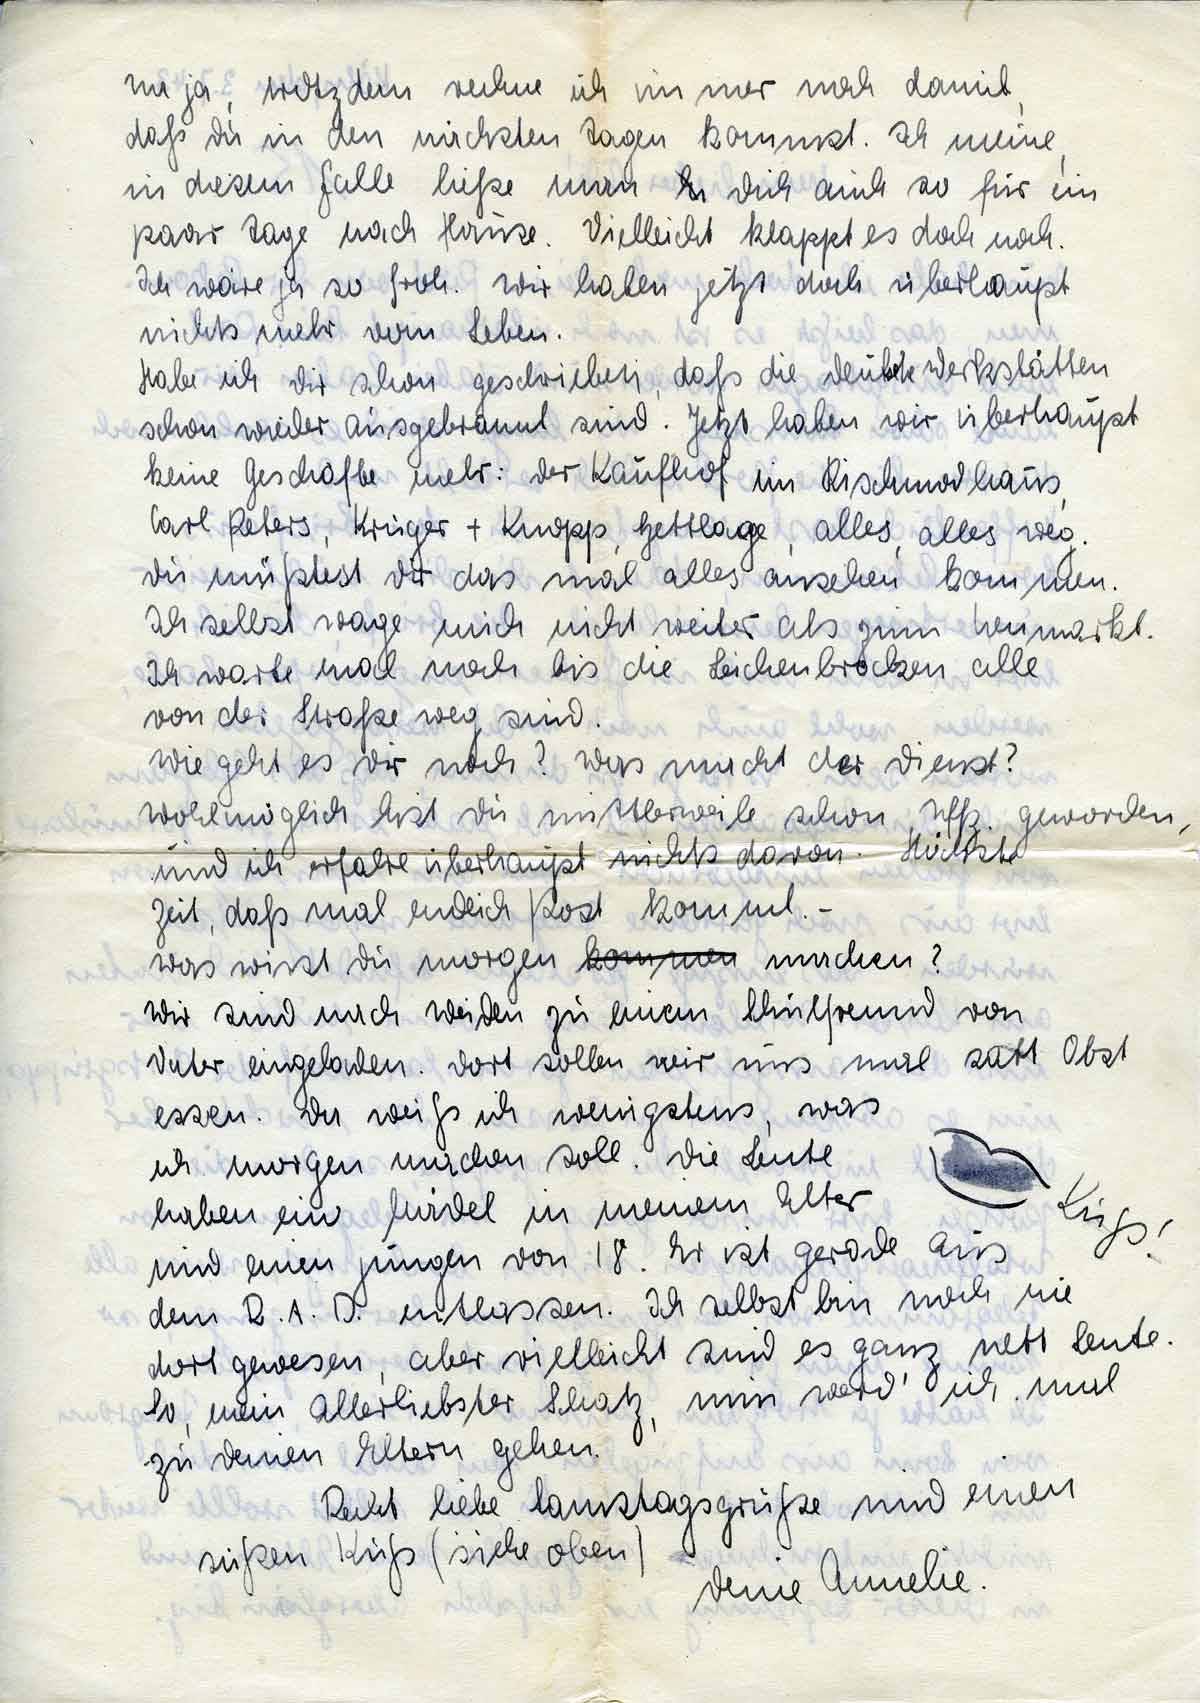 Na ja, trotzdem rechne ich immer noch damit,
daß Du in den nächsten Tagen kommst. Ich meine,
in diesem Falle ließe man Dich auch so für ein
paar Tage nach Hause. Vielleicht klappt es doch noch.
Ich wäre ja so froh. Wir haben jetzt doch überhaupt
nichts mehr vom Leben.
Habe ich Dir schon geschrieben, daß die Deutsche Werkstätten
schon wieder ausgebrannt sind. Jetzt haben wir überhaupt
keine Geschäfte mehr: der Kaufhof im Rischmodhaus,
Carl Peters, Krüger + Knopp, Hettlage, alles, alles weg.
Du müßtest Dir das mal alles ansehen kommen.
Ich selbst wage mich nicht weiter als zum Heumarkt.
Ich warte mal noch bis die Leichenbrocken alle
von der Straße weg sind.
Wie geht es Dir noch? Was macht der Dienst?
Wohlmöglich bist Du mittlerweile schon Uffz. geworden,
und ich erfahre überhaupt nichts davon. Höchste
Zeit, daß mal endlich Post kommt. –
Was wirst Du morgen kommen machen?
Wir sind nach Weiden zu einem Schulfreund von
Vater eingeladen. Dort sollen wir uns mal satt Obst
essen. Da weiß ich wenigstens, was
ich morgen machen soll. Die Leute
haben ein Mädel in meinem Alter
und einen Jungen von 18. Er ist gerade aus
Kuß!
dem R.A.D. entlassen. Ich selbst bin noch nie
dort gewesen, aber vielleicht sind es ganz nett Leute.
So, mein Allerliebster Schatz, nun werd' ich mal
zu Deinen Eltern gehen.
Recht liebe Samstagsgrüße und einen
süßen Kuß (siehe oben)
Deine Annelie.